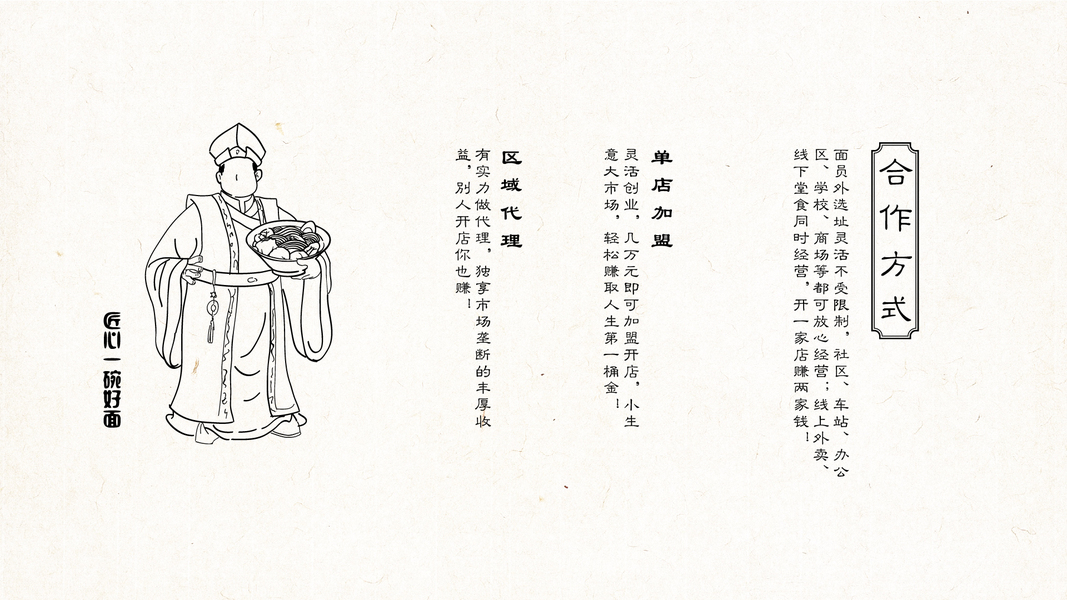 合作方式
面员外选址灵活不受限制，社区、车站、办公
区、学校、商场等都可放心经营；线上外卖、
线下堂食同时经营，开一家店赚两家钱！
单店加盟
灵活创业，几万元即可加盟开店，小生
意大市场，轻松赚取人生第一桶金！
区域代理
有实力做代理，独享市场垄断的丰厚收
益，别人开店你也赚！
匠心一碗好面